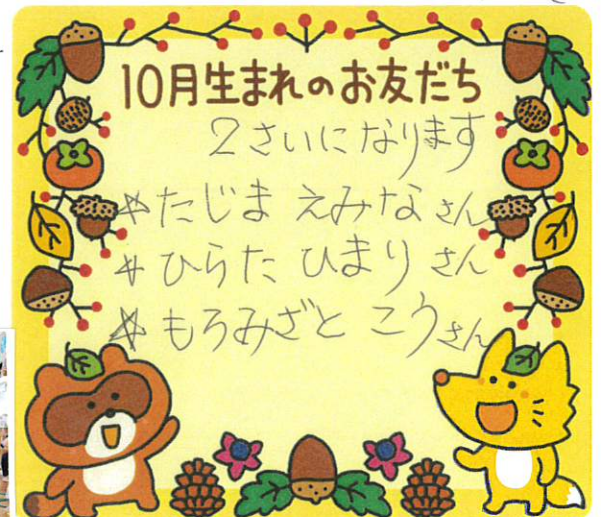 10月生まれのお友だち
2さいになります
☆たじま えみなさん
☆ひらた ひまりさん
☆もろみざと こうさん